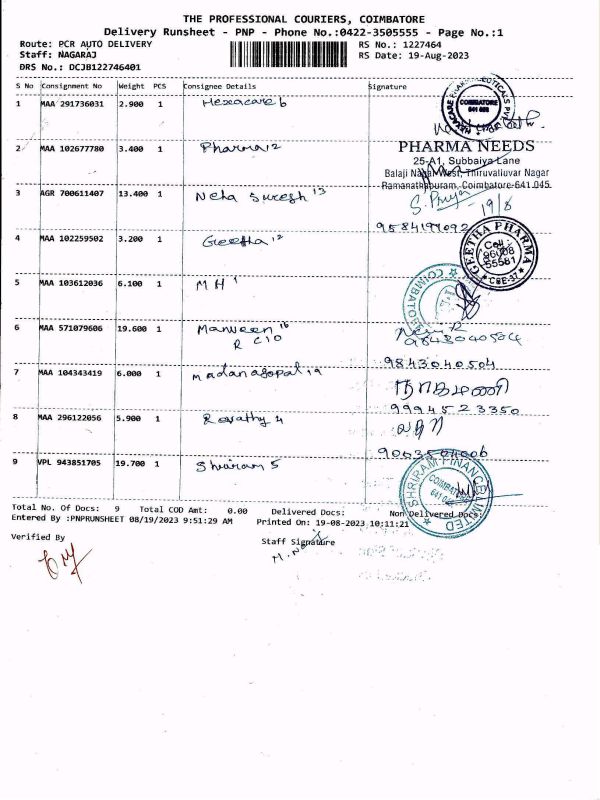 THE PROFESSIONAL COURIERS, COIMBATORE
Delivery Runsheet - PNP - Phone No.:0422-3505555 - Page No.:1
Route: PCR AUTO DELIVERY RS No.: 1227464
Staff: NAGARAJ RS Date: 19-Aug-2023
DRS No.: DCJB122746401
S No Consignment No Weight PCS Consignee Details Signature
1 MAA 291736031 2.900 1 Hexacare 6
COIMBATORE 641
2 MAA 102677780 3.400 1 Pharma 12
PHARMA NEEDS
25-A1, Subbaiya Lane
Balaji Nagar West, Thiruvalluvar Nagar
Ramanathapuram, Coimbatore-641 045.
3 AGR 700611407 13.400 1 Neha Suresh 13
S. Priya 19/8
4 MAA 102259502 3.200 1 Geetha 12
GEETHA PHARMA
Cell: 96008 55581
CBE-37
5 MAA 103612036 6.100 1 MH 1
COIMBATORE
6 MAA 571079606 19.600 1 16
R C/O
9843040504
7 MAA 104343419 6.000 1 Madanagopal 19
9843040504
நாகமணி
9994523350
8 MAA 296122056 5.900 1 Revathy 4
9 VPL 943851705 19.700 1 Shriram 5
SHRIRAM FINANCE LIMITED
COIMBATORE
Total No. Of Docs: 9 Total COD Amt: 0.00 Delivered Docs: Non Delivered Docs:
Entered By :PNPRUNSHEET 08/19/2023 9:51:29 AM Printed On: 19-08-2023 10:11:21
Verified By Staff Signature